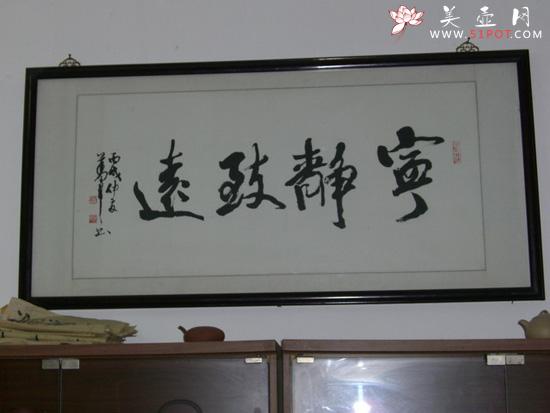 美壶网
WWW.51POT.COM
寧靜致遠
丙戌仲夏